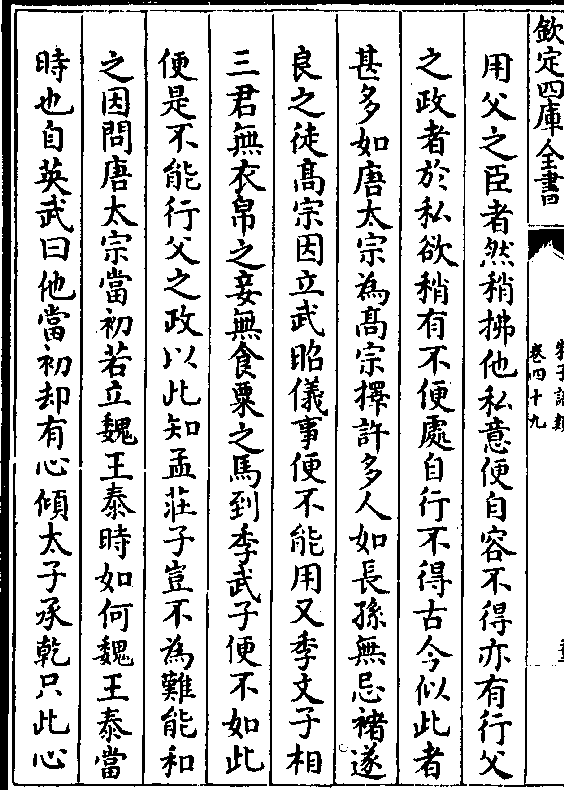 欽定四庫全書
朱子語類
卷四十九
用父之臣者然稍拂他私意便自容不得亦有行父
之政者於私欲稍有不便處自行不得古今似此者
甚多如唐太宗為髙宗擇許多人如長孫無忌褚遂
良之徒髙宗因立武昭儀事便不能用又季文子相
三君無衣帛之妾無食粟之馬到季武子便不如此
便是不能行父之政以此知孟莊子豈不為難能和
之因問唐太宗當初若立魏王泰時如何魏王泰當
時也自英武曰他當初却有心傾太子承乾只此心